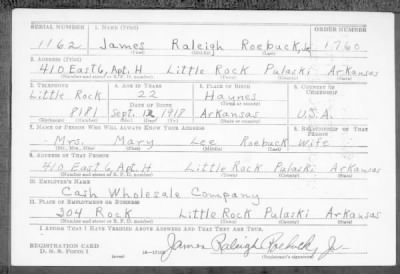 SERIAL NUMBER 1. NAME (Print) ORDER NUMBER
1162 James Raleigh Roebuck, Jr 1760
(First) (Middle) (Last)
2. ADDRESS (Print)
410 East 6, Apt. H Little Rock Pulaski Arkansas
(Number and street or R. F. D. number) (Town) (County) (State)
3. TELEPHONE 4. AGE IN YEARS 5. PLACE OF BIRTH 6. COUNTRY OF CITIZENSHIP
Little Rock 22 Haynes
DATE OF BIRTH (Town or county)
8181 Sept. 12 1918 Arkansas U.S.A.
(Exchange) (Number) (Mo.) (Day) (Yr.) (State or country)
7. NAME OF PERSON WHO WILL ALWAYS KNOW YOUR ADDRESS 8. RELATIONSHIP OF THAT PERSON
Mrs. Mary Lee Roebuck Wife
(Mr., Mrs., Miss) (First) (Middle) (Last)
9. ADDRESS OF THAT PERSON
410 East 6, Apt. H Little Rock Pulaski Arkansas
(Number and street or R. F. D. number) (Town) (County) (State)
10. EMPLOYER'S NAME
Cash Wholesale Company
11. PLACE OF EMPLOYMENT OR BUSINESS
304 Rock Little Rock Pulaski Arkansas
(Number and street or R. F. D. number) (Town) (County) (State)
I AFFIRM THAT I HAVE VERIFIED ABOVE ANSWERS AND THAT THEY ARE TRUE.
REGISTRATION CARD James Raleigh Roebuck, Jr.
D. S. S. Form 1 (Registrant's signature)